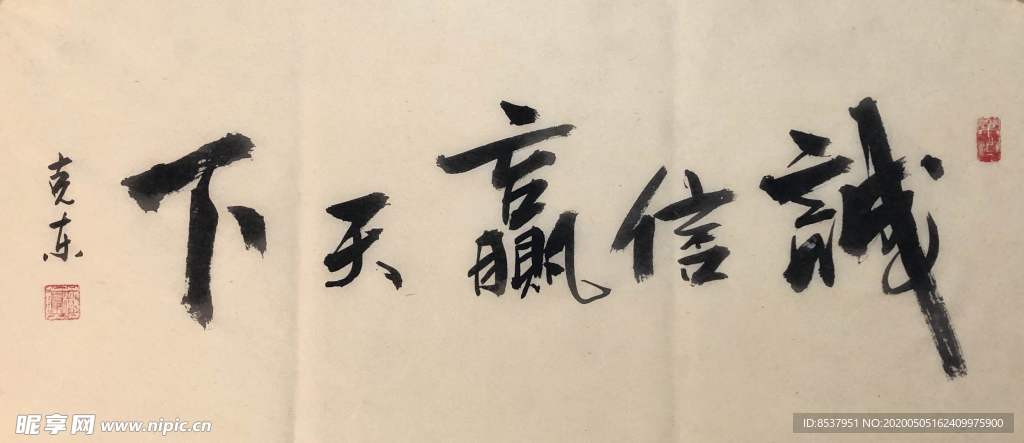 誠信赢天下
克东
昵享网 www.nipic.cn
ID:8537951 NO:20200505162409975900